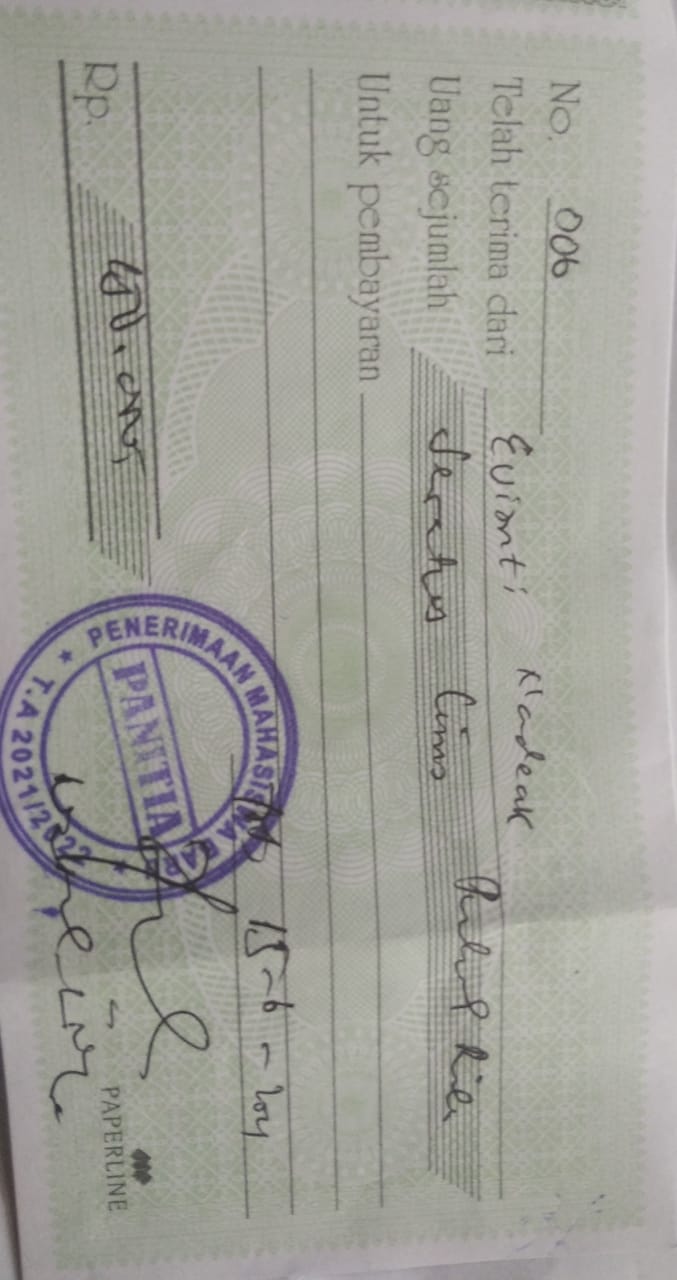 No. 006
Telah terima dari Evianti Nadeak
Uang sejumlah Seratus lima Puluh Ribu
Untuk pembayaran
15-6-2021
Rp. 150.000,
PENERIMAAN MAHASISWA BARU
PANITIA
T.A 2021/2022
PAPERLINE